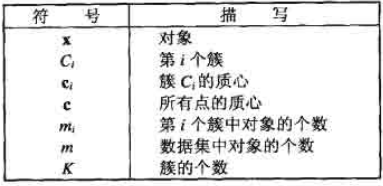 符 号 描 写
x 对象
Ci 第 i 个簇
ci 簇 Ci 的质心
c 所有点的质心
mi 第 i 个簇中对象的个数
m 数据集中对象的个数
K 簇的个数